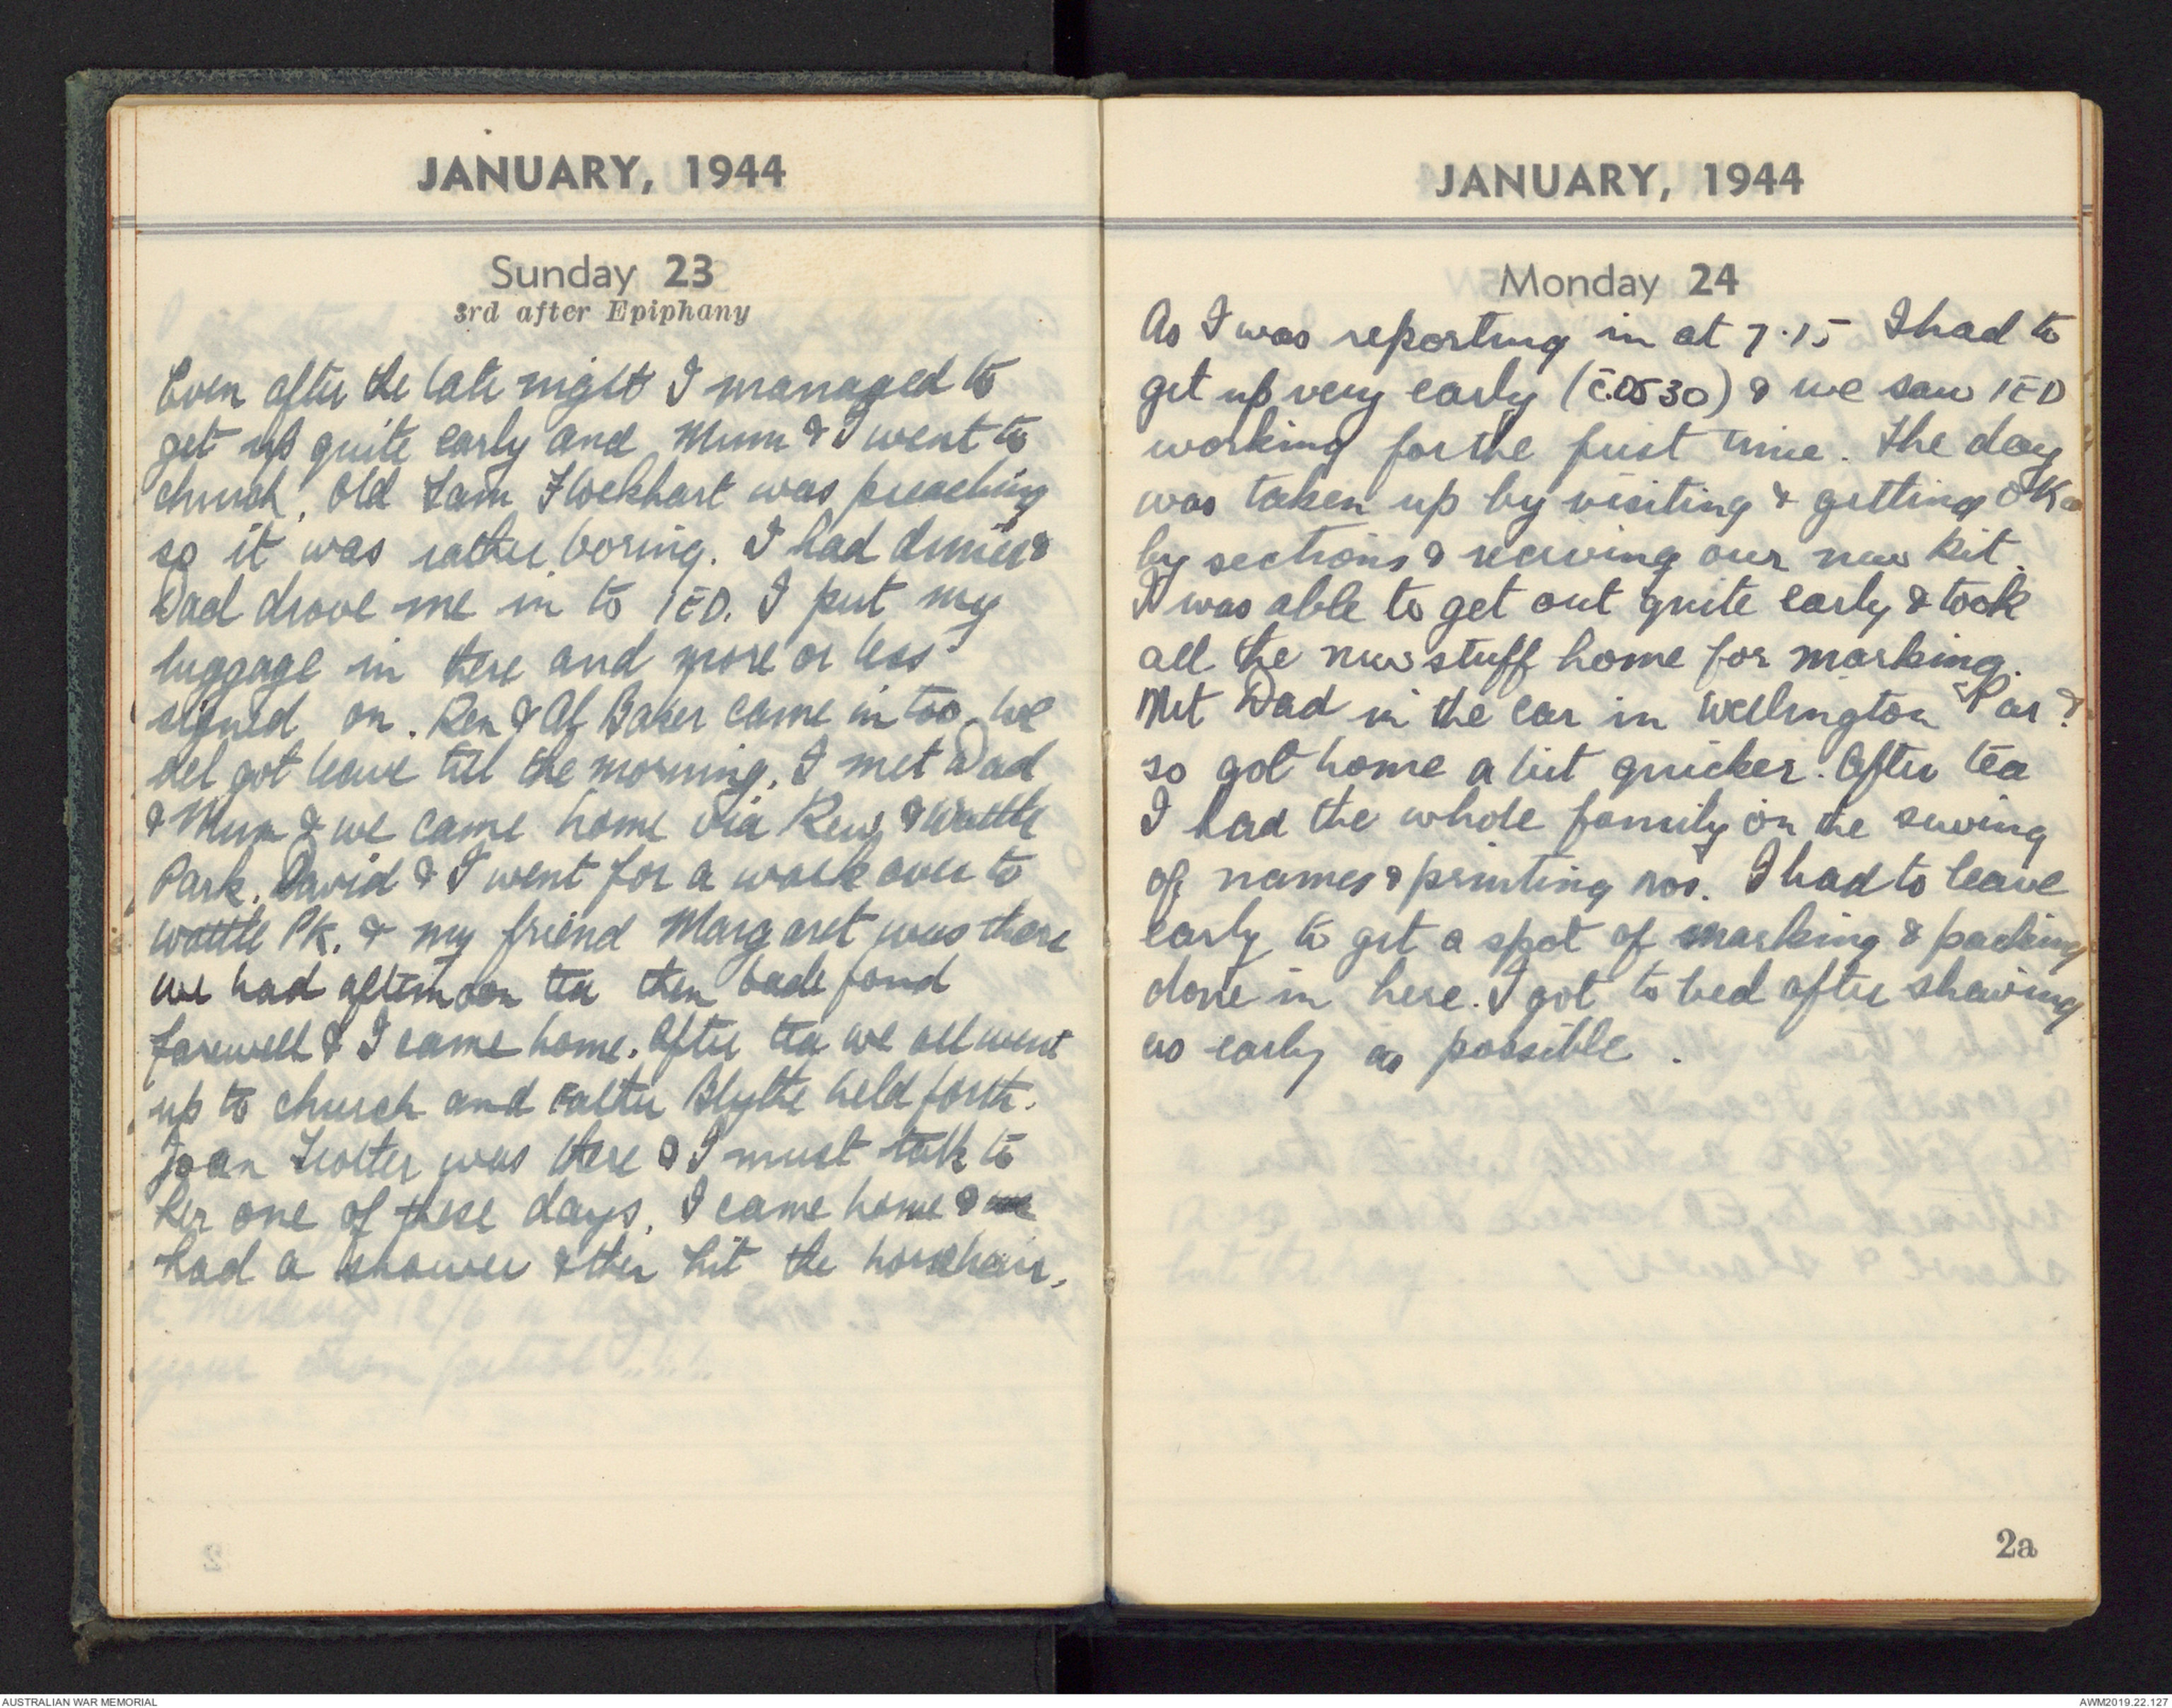 JANUARY, 1944
Sunday 23
3rd after Epiphany
Even after the late night I managed to
get up quite early and Mum & I went to
church. Old Sam Flockhart was preaching
so it was rather boring. I had dinner &
Dad drove me in to 1ED. I put my
luggage in there and more or less
signed on. Ren & Alf Baker came in too. We
all got leave till the morning. I met Dad
& Mum & we came home via Kew & Wattle
Park. David & I went for a walk over to
Wattle Pk. & my friend Margaret was there
we had afternoon tea then bade fond
farewell & I came home. After tea we all went
up to church and Blythe held forth.
Joan Trotter was there & I must talk to
her one of these days. I came home &
had a shower & then hit the horsehair.
2
JANUARY, 1944
Monday 24
As I was reporting in at 7.15 I had to
get up very early (c. 0530) & we saw 1ED
working for the first time. The day
was taken up by visiting & getting OKs
by sections & receiving our new kit.
I was able to get out quite early & took
all the new stuff home for marking.
Met Dad in the car in Wellington Par?
so got home a bit quicker. After tea
I had the whole family on the sewing
of names & printing nos. I had to leave
early to get a spot of marking & packing
done in here. I got to bed after shaving
as early as possible.
2a
AUSTRALIAN WAR MEMORIAL
AWM2019.22.127